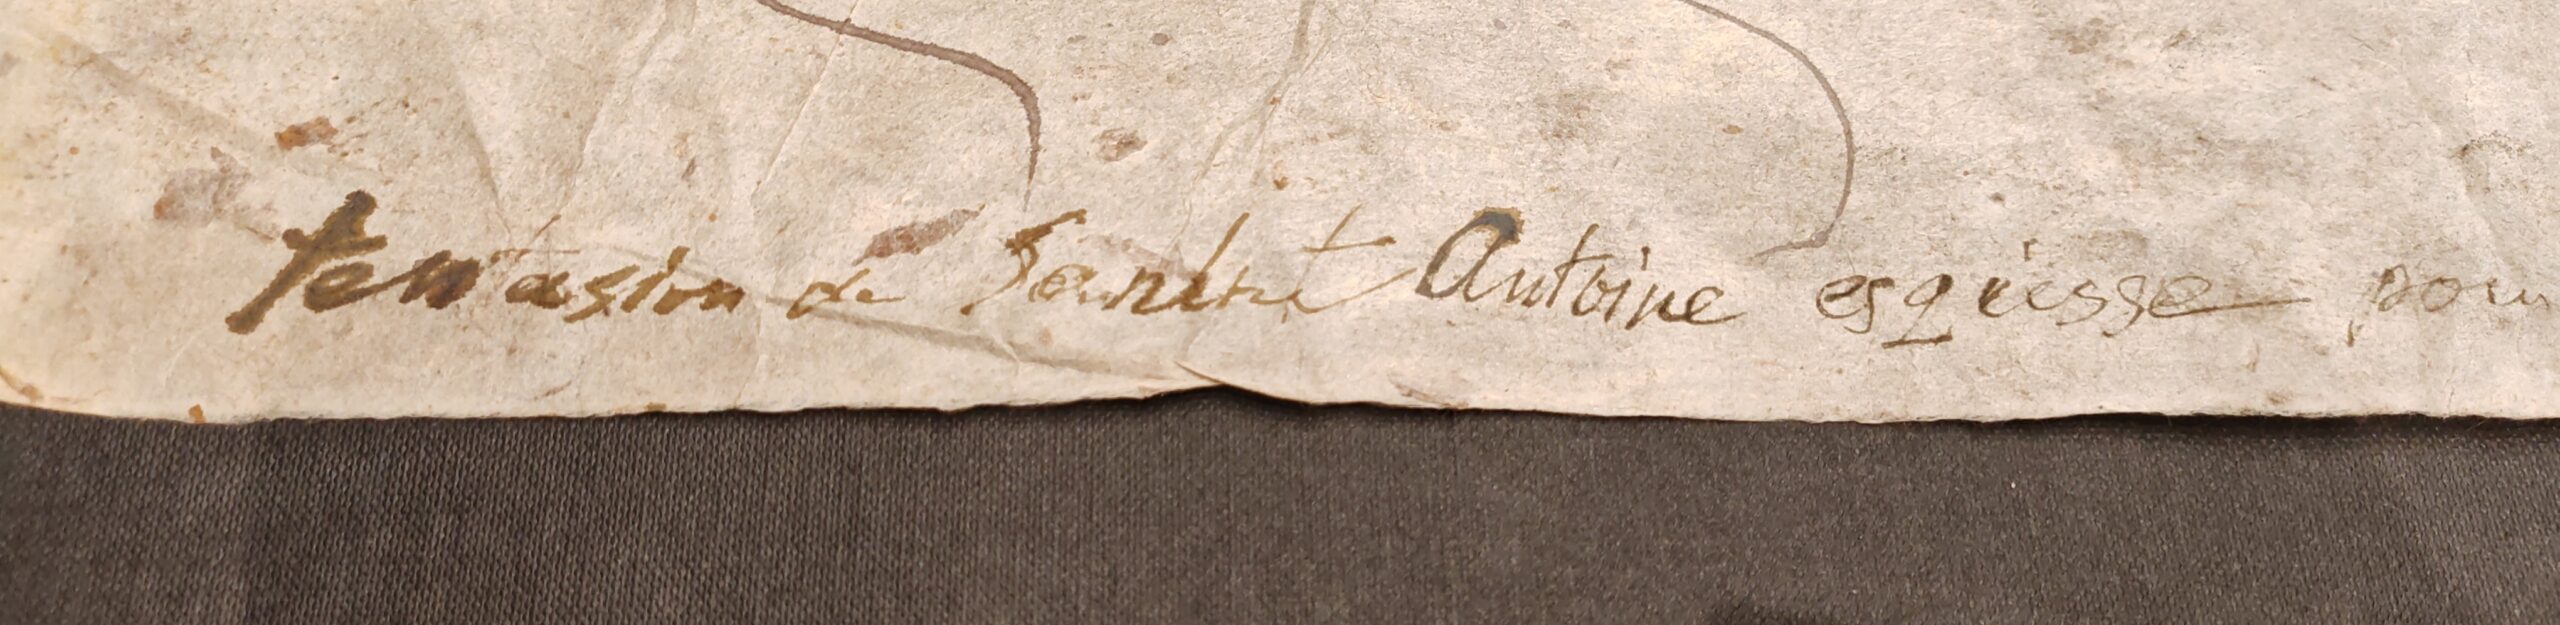 tentasion de Saint Antoine esqiesse pour